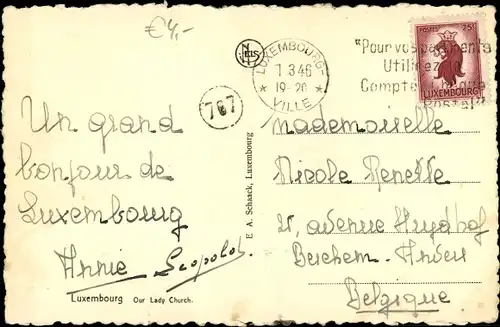 €4,-
NELS
LUXEMBOURG-
1 3 46
19-20
* VILLE *
"Pour vos paiements
Utilisez
Compte
Postal"
POSTES 75c
LUXEMBOURG
787
Un grand
bonjour de
Luxembourg
Annie Leopold.
E. A. Schaack, Luxembourg
Mademoiselle
Nicole Renette
avenue
Berchem-Anvers
Belgique
Luxembourg Our Lady Church.